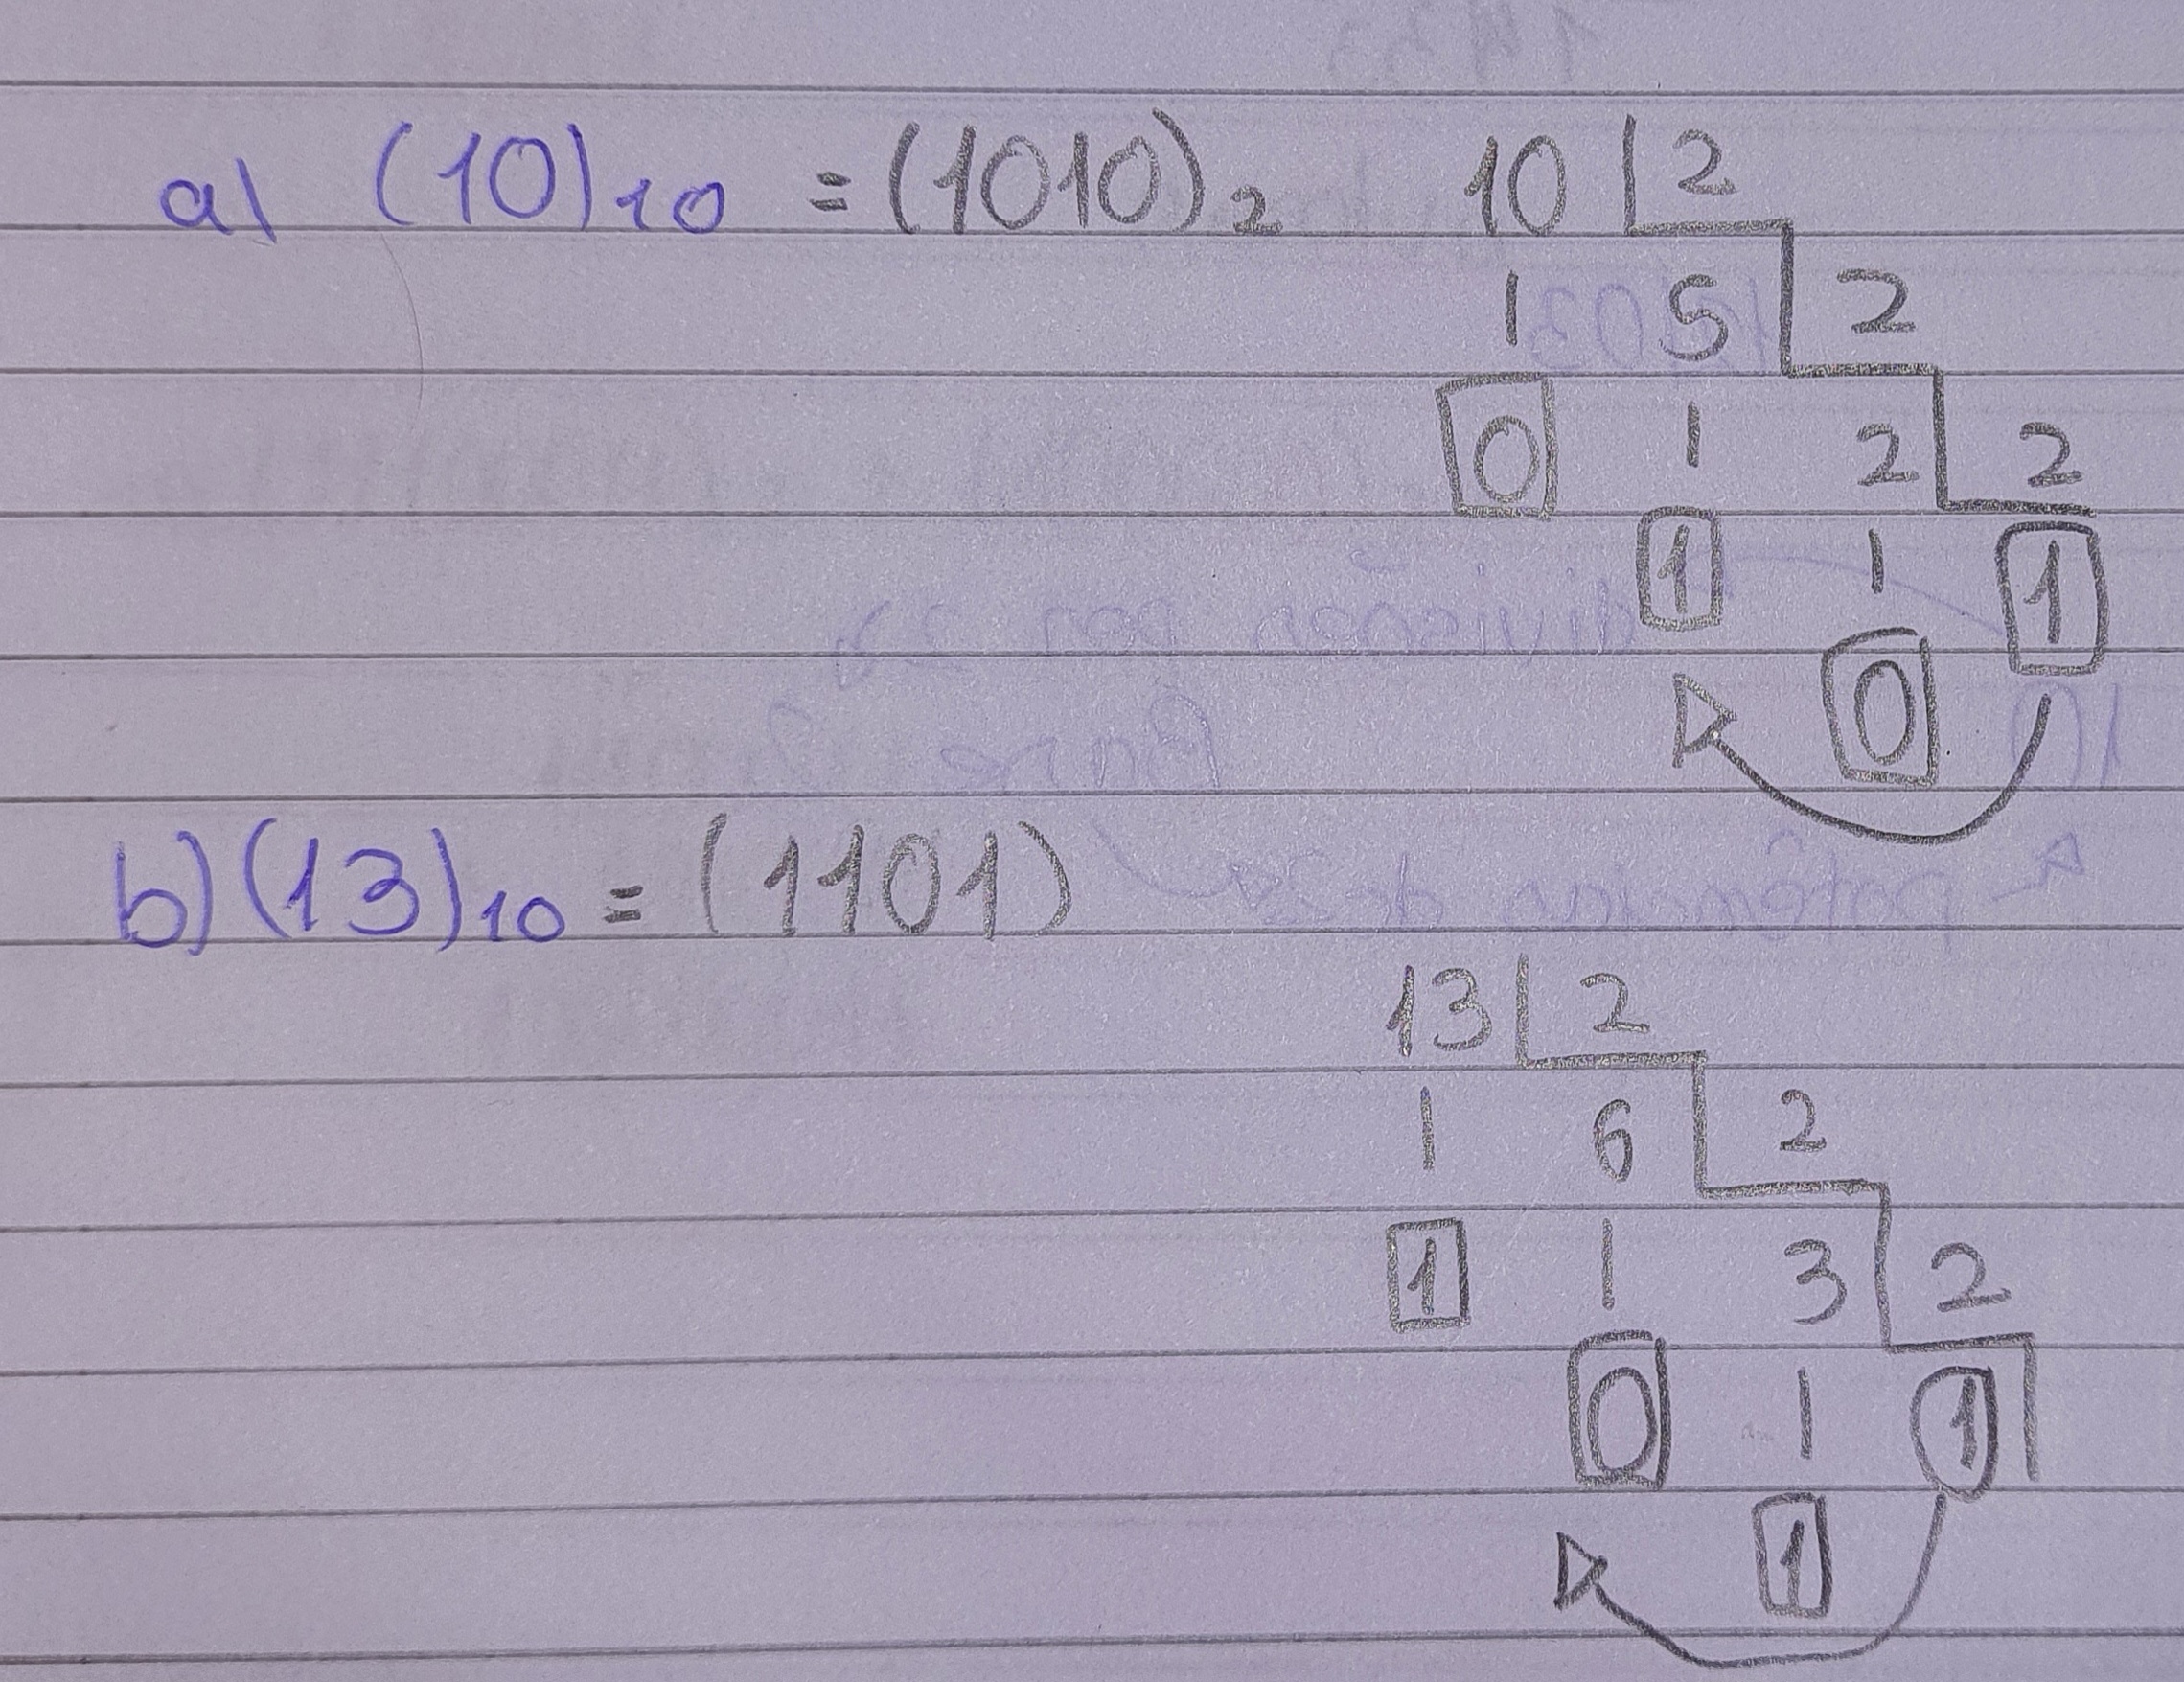 a) (10)10 = (1010)2 10 | 2
| 5 | 2
0 | 2 | 2
1 | 1
0
b) (13)10 = (1101)
13 | 2
| 6 | 2
1 | 3 | 2
0 | 1
1